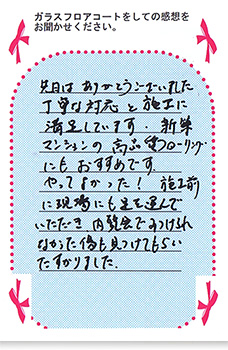 ガラスフロアコートをしての感想を
お聞かせください。
先日は ありがとうございました
丁寧な対応と施工に
満足しています。新築
マンションの高品質フローリング
にもおすすめです。
やってよかった! 施工前
に現場にも足を運んで
いただき 内覧会でみつけられ
なかった傷も見つけてもらい
たすかりました。